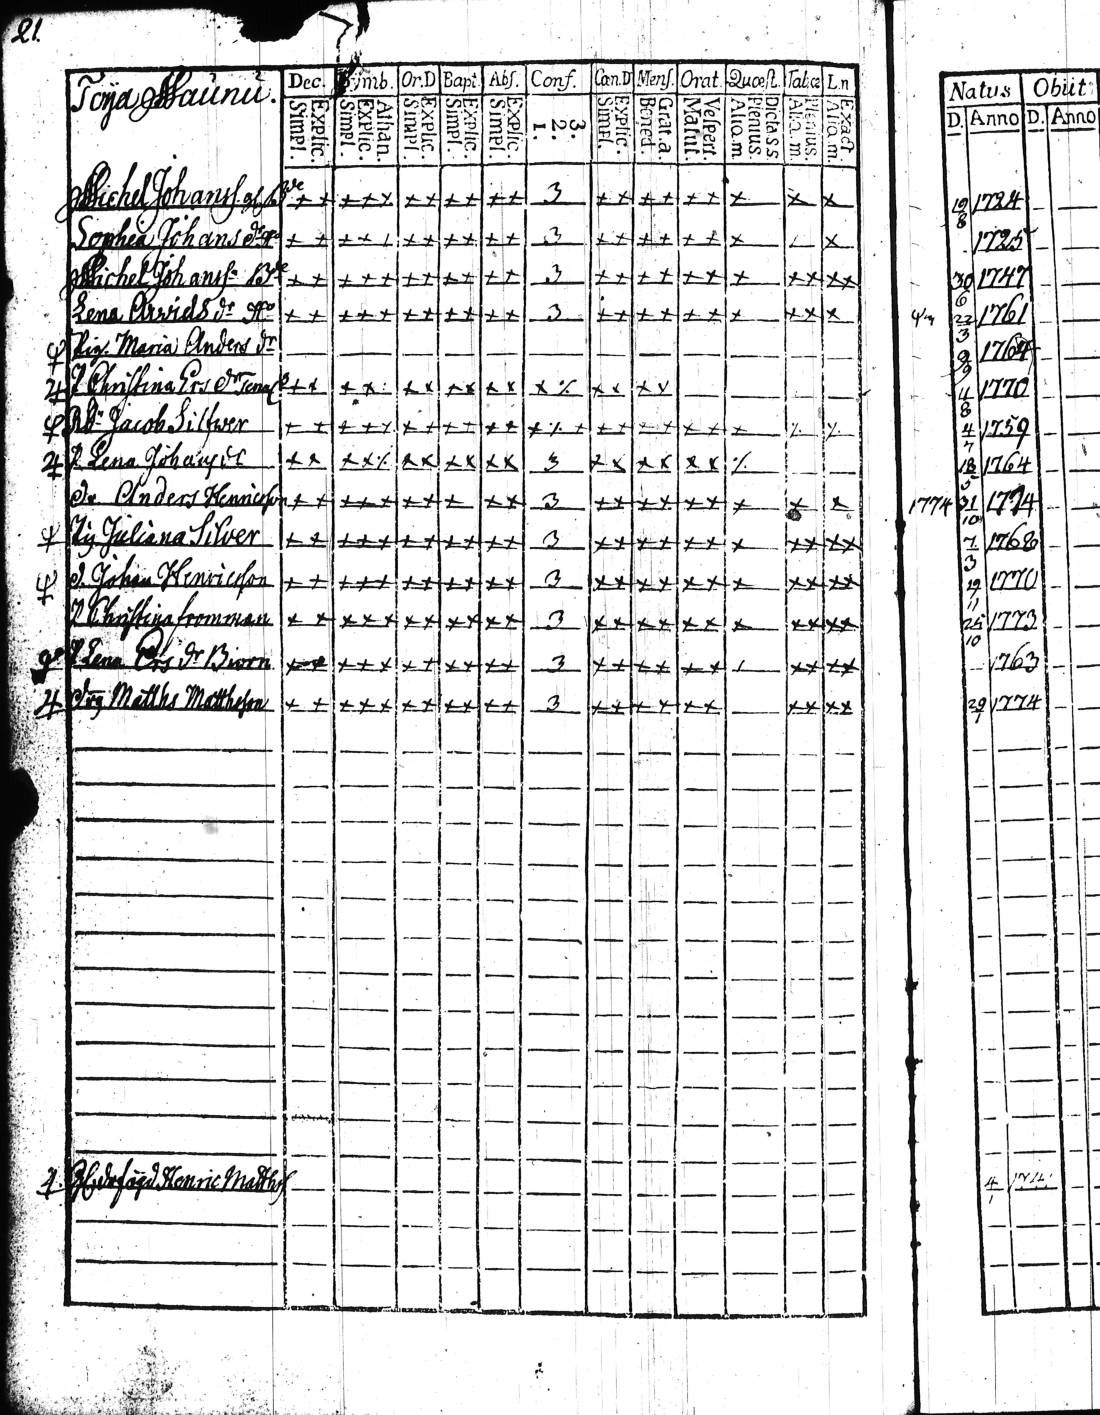 21.
Töÿä Maunu.
Dec. Symb. Or.D Bapt. Abs. Conf. Can.D Mens. Orat. Quæst. Tab.œ Ln Natus Obiit
Explic. Simpl. Athan. Explic. Simpl. Explic. Simpl. Explic. Simpl. Explic. Simpl. 3. 2. 1. Explic. Simpl. Grat.a. Bened. Vespert. Matut. Dictass Plenius. Aliq.m Plenius. Aliq.m Exact. Aliq.m D. Anno D. Anno
Michel Johanss. + + + + x + x + + + + 3 x x + + + + x x x 19/8 1724
Sophia Johans dr + + + + + + + + + + 3 + + + + + + x x 1725
Michel Johanss. + + + + + + + + + + + 3 + + + + + + x x x x x 30/6 1747
Lena Arvids dr + + + + + + + + + + + 3 + + + + + + x x x x 22/3 1761
Pig. Maria Anders dr 9/9 1764
P Christina Ers dr + + x x x x x x x x x % x x x x 4/8 1770
Jacob Silfwer + + + + % + + + + x x x % + + + + + + + + % % 4/7 1759
P Lena Johans dr x x x x % x x x x x x 3 x x x x x x % 18/5 1764
Dr Anders Henricsson + + + + + + + + + + 3 + + + + + + x x x 1774 31/10 1774
Pig Juliana Silver + + + + + + + + + + + 3 + + + + + + x x x x x 7/3 1768
D. Johan Henricsson + + + + + + + + + + + 3 x x x x x x x x x x x 19/11 1770
P Christina fromman x x x x x x x x x x x 3 x x x x x x x x x x x 25/10 1773
P Lena Ers dr Biorn x x + + + + + + + + + 3 x x + + + + / x x x x 1763
Drg Matths Matthsson x x x x x x x x x x x 3 x x x x x x x x x x 29/7 1774
Henric Matths 4/1